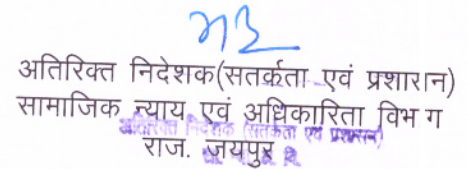 अतिरिक्त निदेशक(सतर्कता एवं प्रशारान)
सामाजिक न्याय एवं अधिकारिता विभ ग
अतिरिक्त निदेशक (सतर्कता एवं प्रशासन)
राज. जयपुर